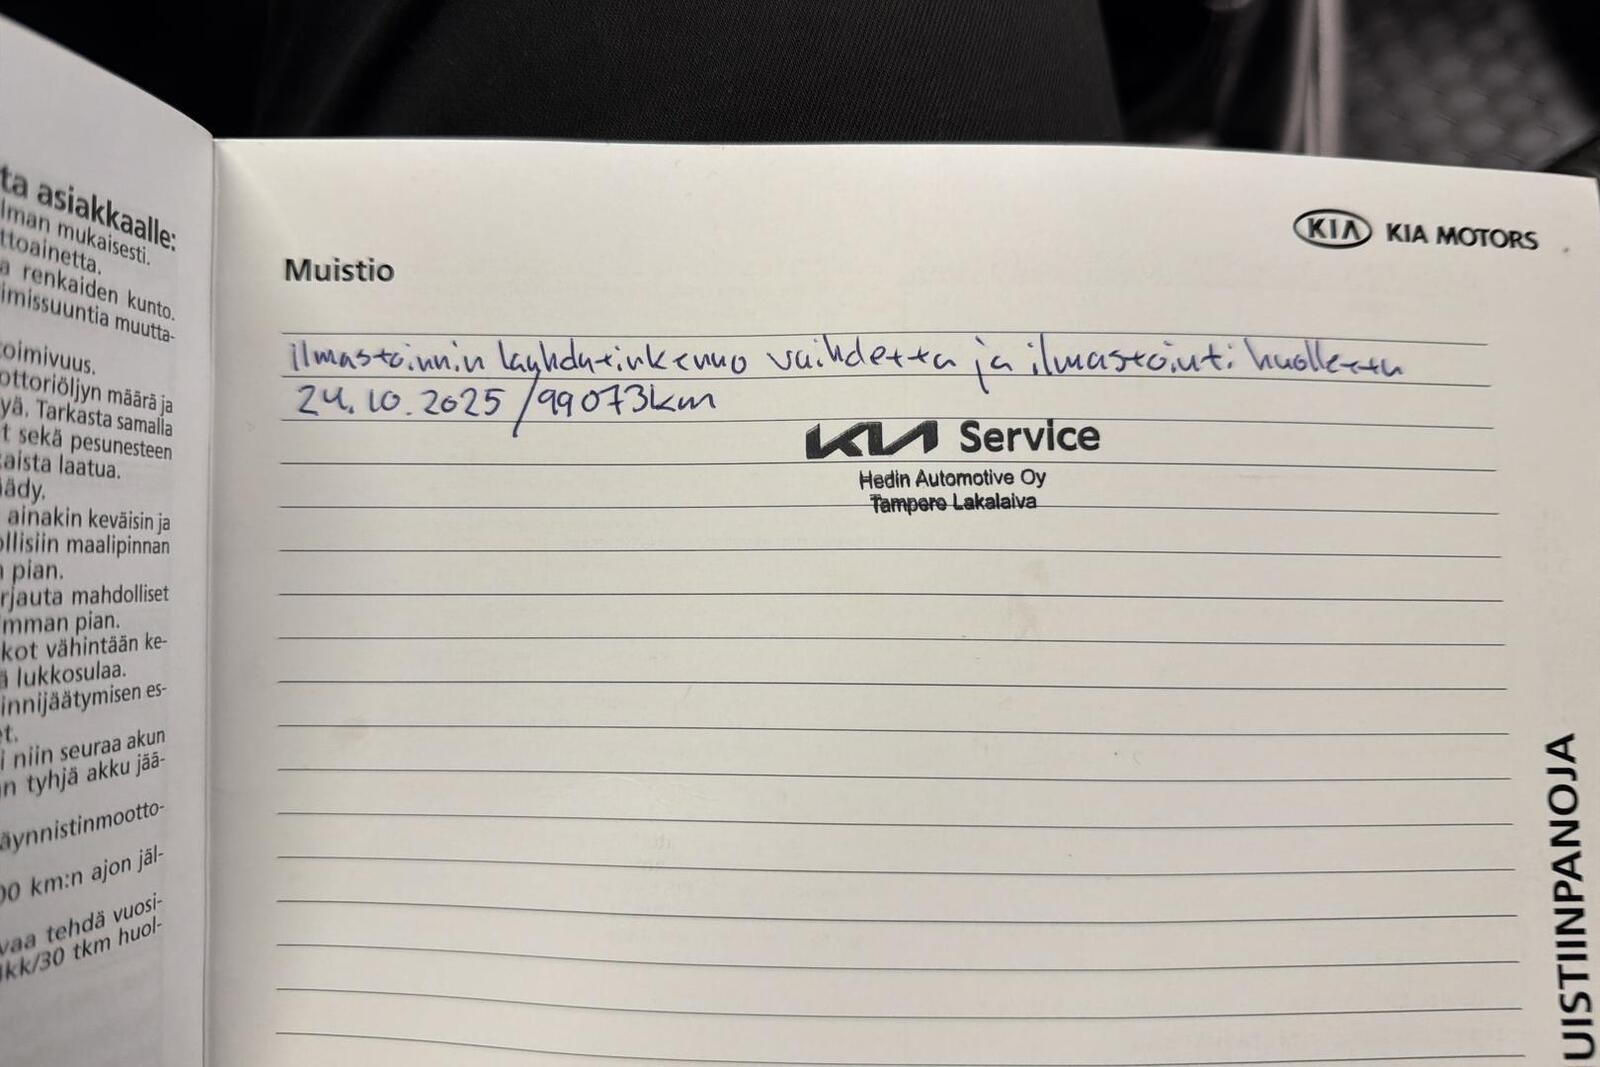 ta asiakkaalle:
lman mukaisesti.
ttoainetta.
a renkaiden kunto.
imissuuntia muutta-
oimivuus.
ottoriöljyn määrä ja
yä. Tarkasta samalla
t sekä pesunesteen
aista laatua.
äädy.
ainakin keväisin ja
ollisiin maalipinnan
n pian.
rjauta mahdolliset
mman pian.
kot vähintään ke-
ä lukkosulaa.
innijäätymisen es-
et.
i niin seuraa akun
n tyhjä akku jää-
äynnistinmootto-
00 km:n ajon jäl-
vaa tehdä vuosi-
kk/30 tkm huol-
KIA KIA MOTORS
Muistio
ilmastoinnin lauhdutinkenno vaihdettu ja ilmastointi huollettu
24.10.2025 / 99073km
KIA Service
Hedin Automotive Oy
Tampere Lakalaiva
UISTIINPANOJA